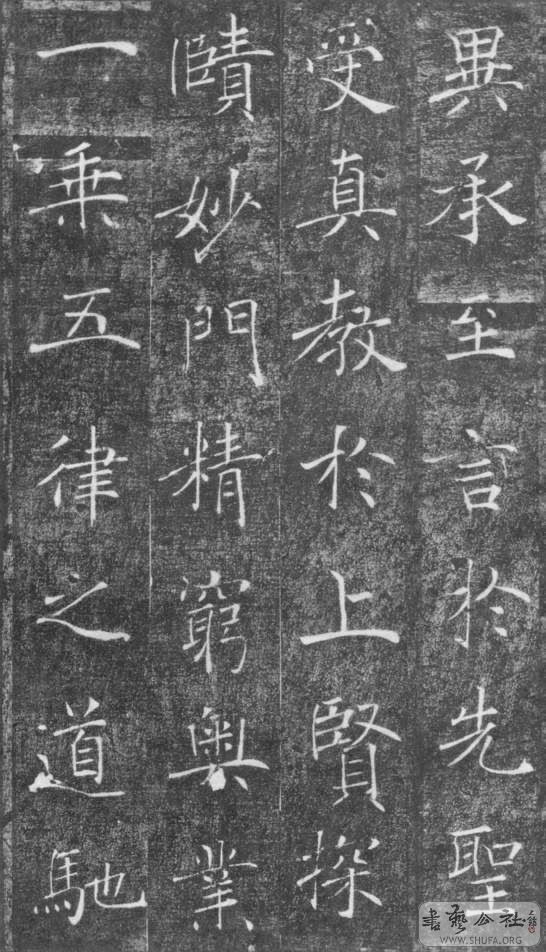 異承至言於先聖
受真教於上賢探
賾妙門精窮奧業
一乗五律之道馳
WWW.SHUFA.ORG